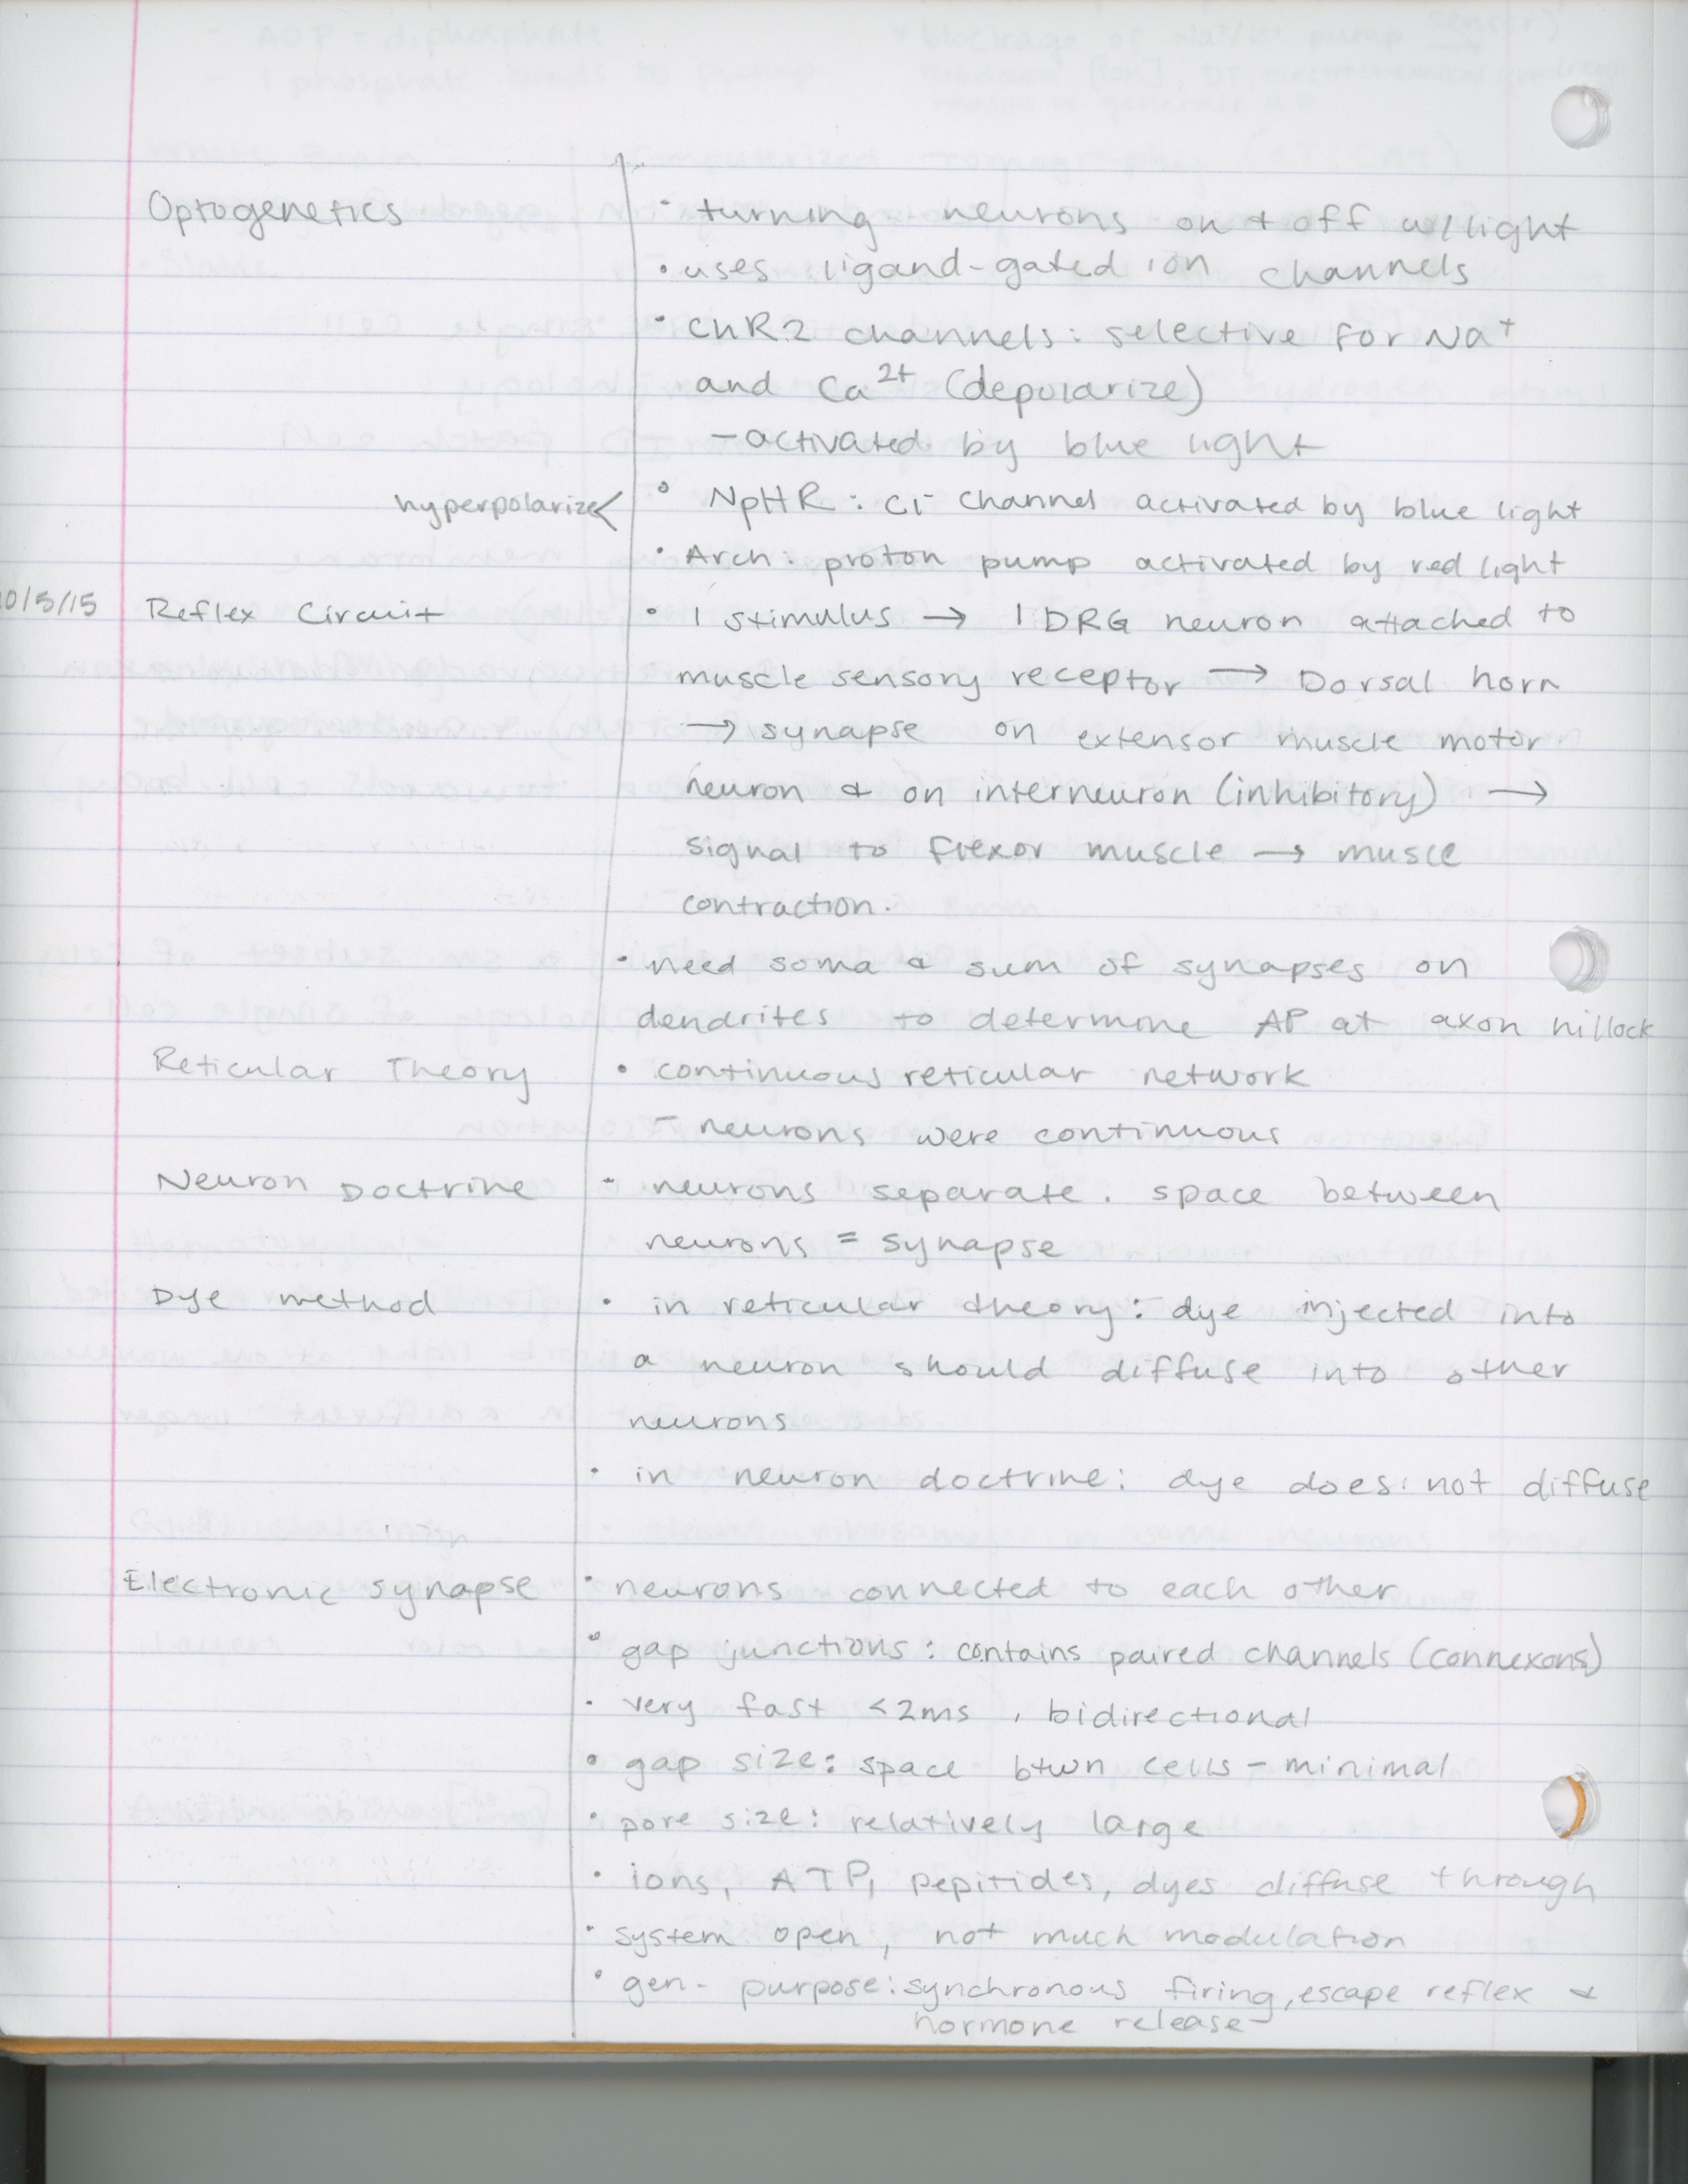 Optogenetics
· turning neurons on + off w/light
· uses ligand-gated ion channels
· ChR2 channels: selective for Na⁺
and Ca²⁺ (depolarize)
- activated by blue light
hyperpolarize < · NpHR: Cl⁻ channel activated by blue light
· Arch: proton pump activated by red light
10/5/15 Reflex Circuit · 1 stimulus → 1 DRG neuron attached to
muscle sensory receptor → Dorsal horn
→ synapse on extensor muscle motor
neuron & on interneuron (inhibitory) →
signal to flexor muscle → muscle
contraction.
· need soma & sum of synapses on
dendrites to determine AP at axon hillock
Reticular Theory · continuous reticular network
- neurons were continuous
Neuron Doctrine - neurons separate. space between
neurons = synapse
Dye method · in reticular theory: dye injected into
a neuron should diffuse into other
neurons
· in neuron doctrine: dye does not diffuse
Electronic synapse · neurons connected to each other
· gap junctions: contains paired channels (connexons)
· very fast <2ms, bidirectional
· gap size: space btwn cells - minimal
· pore size: relatively large
· ions, ATP, pepitides, dyes diffuse through
· system open, not much modulation
· gen. purpose: synchronous firing, escape reflex &
hormone release